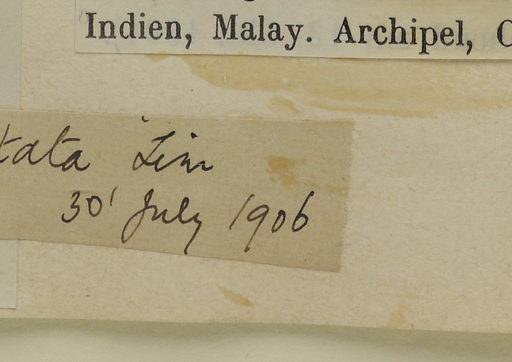 Indien, Malay. Archipel,
tata Lin
30' July 1906